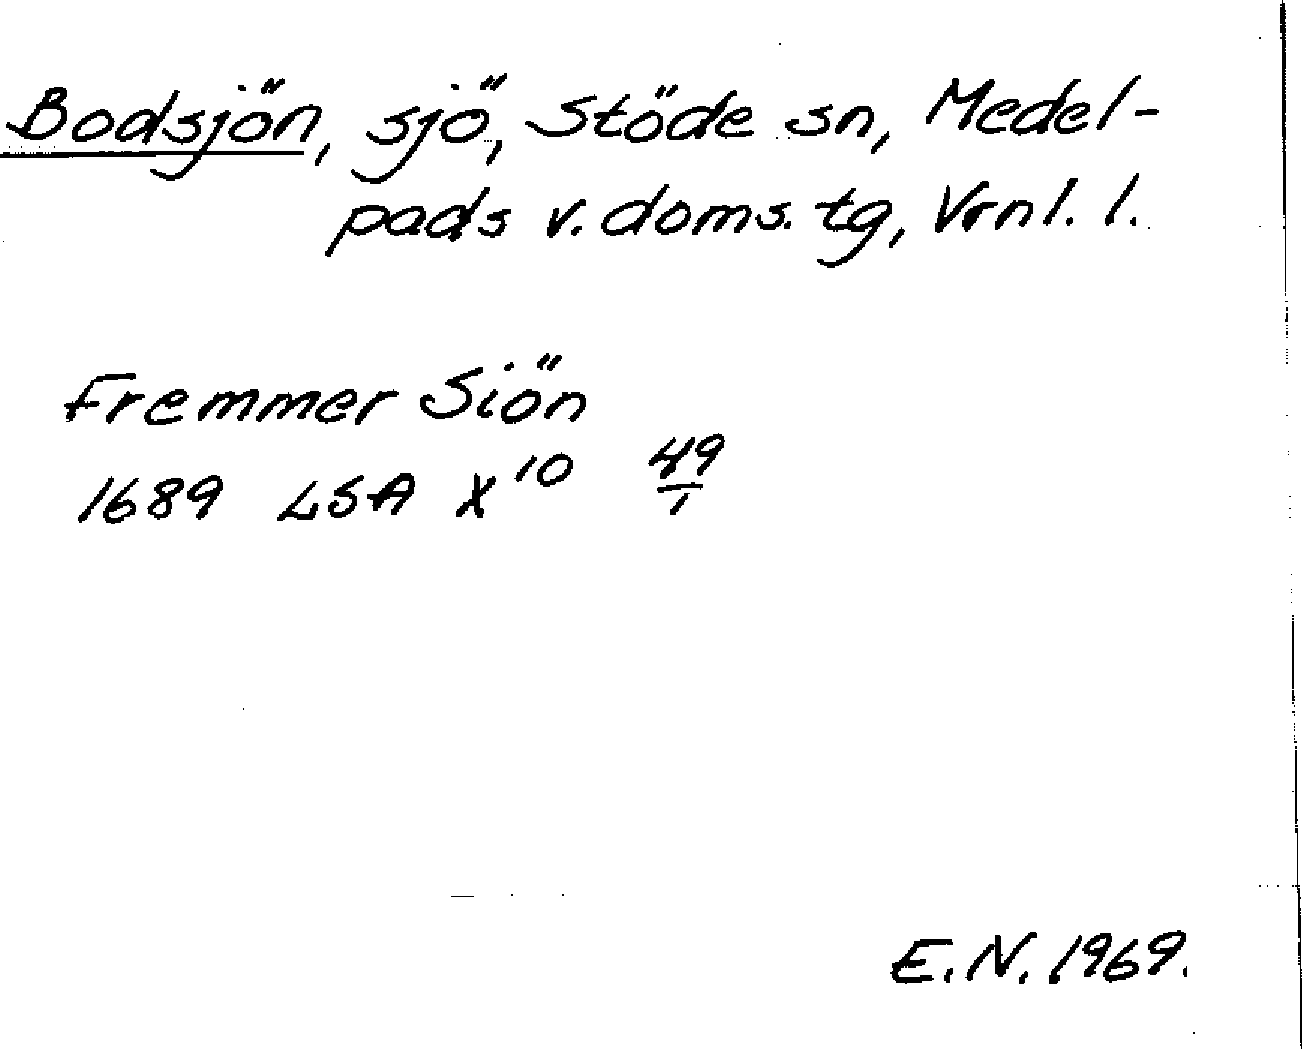 Bodsjön, sjö, Stöde sn, Medel-
pads v. doms. tg, Vrnl. l.
Fremmer Siön
1689 LSA X¹⁰ 49/1
E.N. 1969.